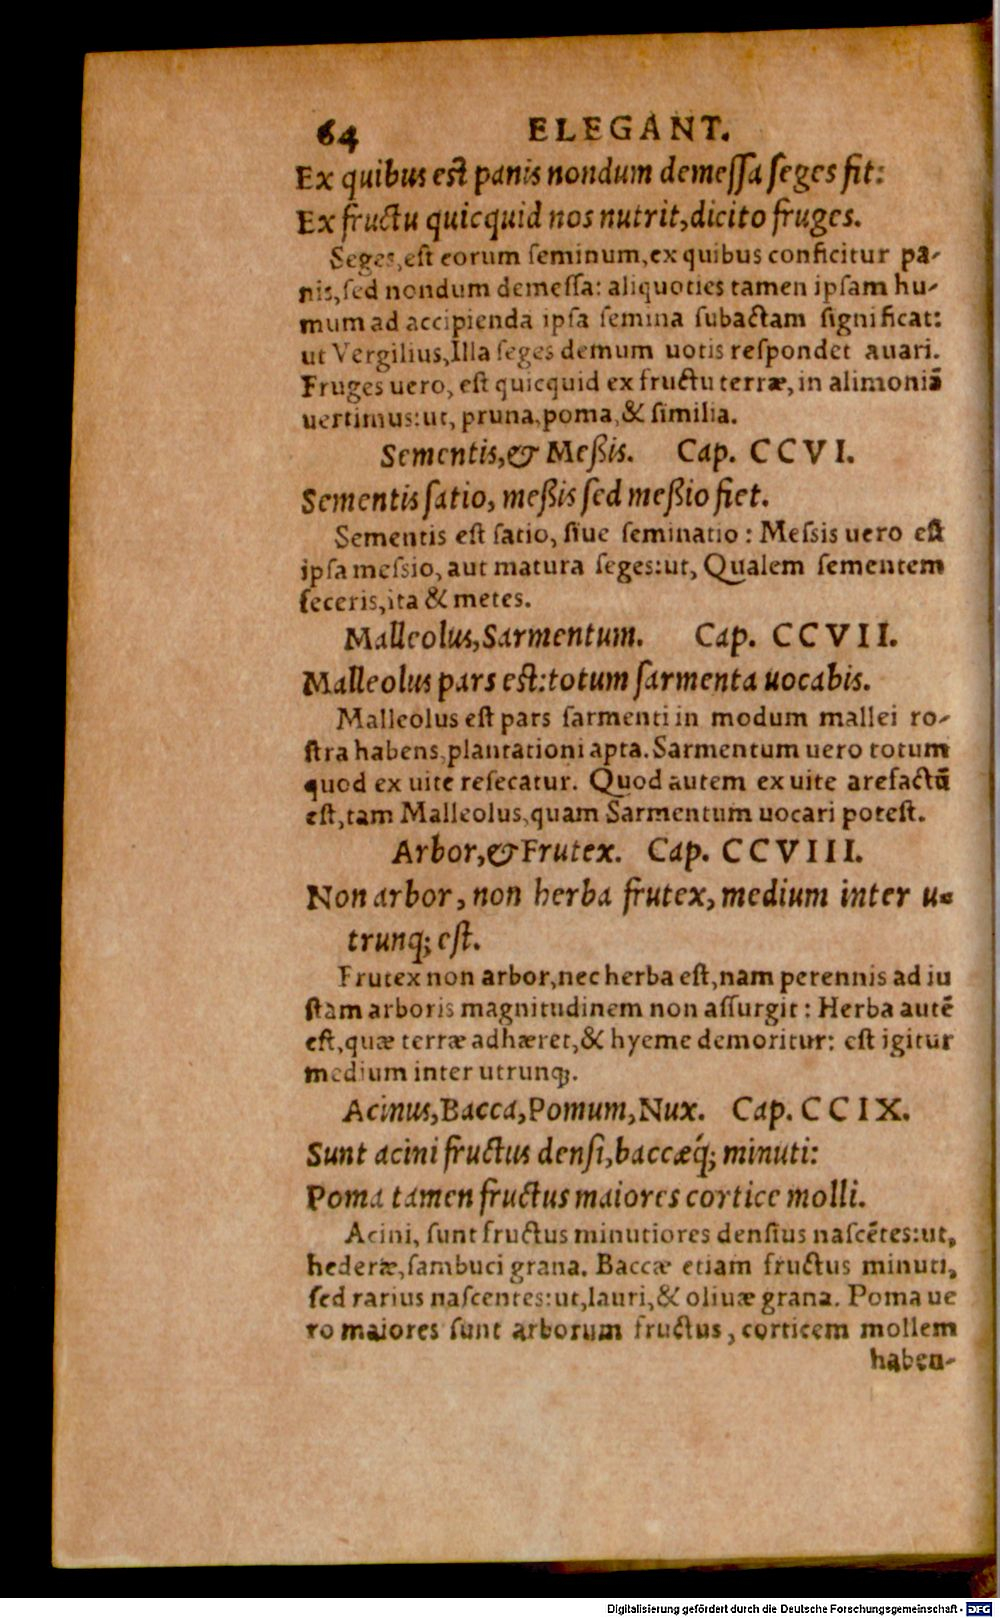 64 ELEGANT.
Ex quibus est panis nondum demeſſa ſeges fit:
Ex fructu quicquid nos nutrit, dicito fruges.
Seges, eſt eorum ſeminum, ex quibus conficitur pa-
nis, ſed nondum demeſſa: aliquoties tamen ipſam hu-
mum ad accipienda ipſa ſemina ſubactam ſignificat:
ut Vergilius, Illa ſeges demum uotis reſpondet auari.
Fruges uero, eſt quicquid ex fructu terræ, in alimoniā
uertimus: ut, pruna, poma, & ſimilia.
Sementis, & Meßis. Cap. CCVI.
Sementis ſatio, meßis ſed meßio fiet.
Sementis eſt ſatio, ſiue ſeminatio: Meſsis uero eſt
ipſa meſsio, aut matura ſeges: ut, Qualem ſementem
feceris, ita & metes.
Malleolus, Sarmentum. Cap. CCVII.
Malleolus pars eſt: totum ſarmenta uocabis.
Malleolus eſt pars ſarmenti in modum mallei ro-
ſtra habens, plantationi apta. Sarmentum uero totum
quod ex uite reſecatur. Quod autem ex uite arefactū
eſt, tam Malleolus, quam Sarmentum uocari poteſt.
Arbor, & Frutex. Cap. CCVIII.
Non arbor, non herba frutex, medium inter u-
trunq; eſt.
Frutex non arbor, nec herba eſt, nam perennis ad iu
ſtam arboris magnitudinem non aſſurgit: Herba autē
eſt, quæ terræ adhæret, & hyeme demoritur: eſt igitur
medium inter utrunq;.
Acinus, Bacca, Pomum, Nux. Cap. CCIX.
Sunt acini fructus denſi, baccæq́; minuti:
Poma tamen fructus maiores cortice molli.
Acini, ſunt fructus minutiores denſius naſcētes: ut,
hederæ, ſambuci grana. Baccæ etiam fructus minuti,
ſed rarius naſcentes: ut, lauri, & oliuæ grana. Poma ue
ro maiores ſunt arborum fructus, corticem mollem
haben-
Digitalisierung gefördert durch die Deutsche Forschungsgemeinschaft - DFG